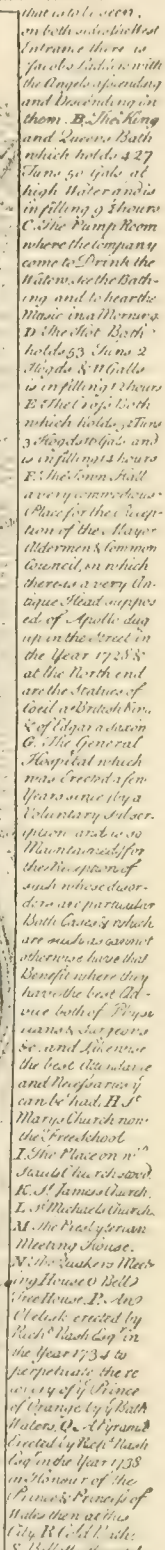 that is to be seen,
on both sides the West
Entrance there is
Jacobs Ladder with
the Angels Ascending
and Descending in
them. B. The King
and Queens Bath
which holds 427
Tuns 50 Gals at
high Water and is
in filling 9 ½ hours
C. The Pump Room
where the company
come to Drink the
Waters, see the Bath-
ing and to hear the
Music in a Morning
D The Hot Bath
holds 53 Tuns 2
Hogds & 11 Galls
is in filling 12 hours
E. The Cross Bath
which holds 52 Tuns
3 Hogds 10 Gals and
is in filling 14 hours
F. The Town Hall
a very commodious
Place for the Recep-
tion of the Mayor
Aldermen & Common
Council, on which
there is a very An-
tique Head suppos
ed of Apollo dug
up in the Street in
the Year 1728 &
at the North end
are the Statues of
Coeil a British King
& of Edgar a Saxon
G. The General
Hospital which
was Erected a few
Years since by a
Voluntary Subscr-
iption and is so
Maintained for
the Reception of
such whose disor-
ders are particular
Bath Cases & which
are such as cannot
otherwise have that
Benefit where they
have the best Ad-
vice both of Phys-
icians & Surgeons
&c. and Likewise
the best attendance
and Necessaries yt
can be had. H St
Marys Church now
the Free School
I. The Place on wch
Stauls Church stood.
K. St James's Church.
L. St Michaels Church.
M. the Presbyterian
Meeting House.
N. the Quakers Meet-
ing House O Bells
Tree House. P. An
Obelisk erected by
Richd Nash Esq in
the Year 1734 to
perpetuate the re
covery of ye Prince
of Orange by ye Bath
Waters. Q. A Pyramid
Erected by Richd Nash
Esq in the Year 1738
in Honour of the
Prince & Princess of
Wales then at this
City. R